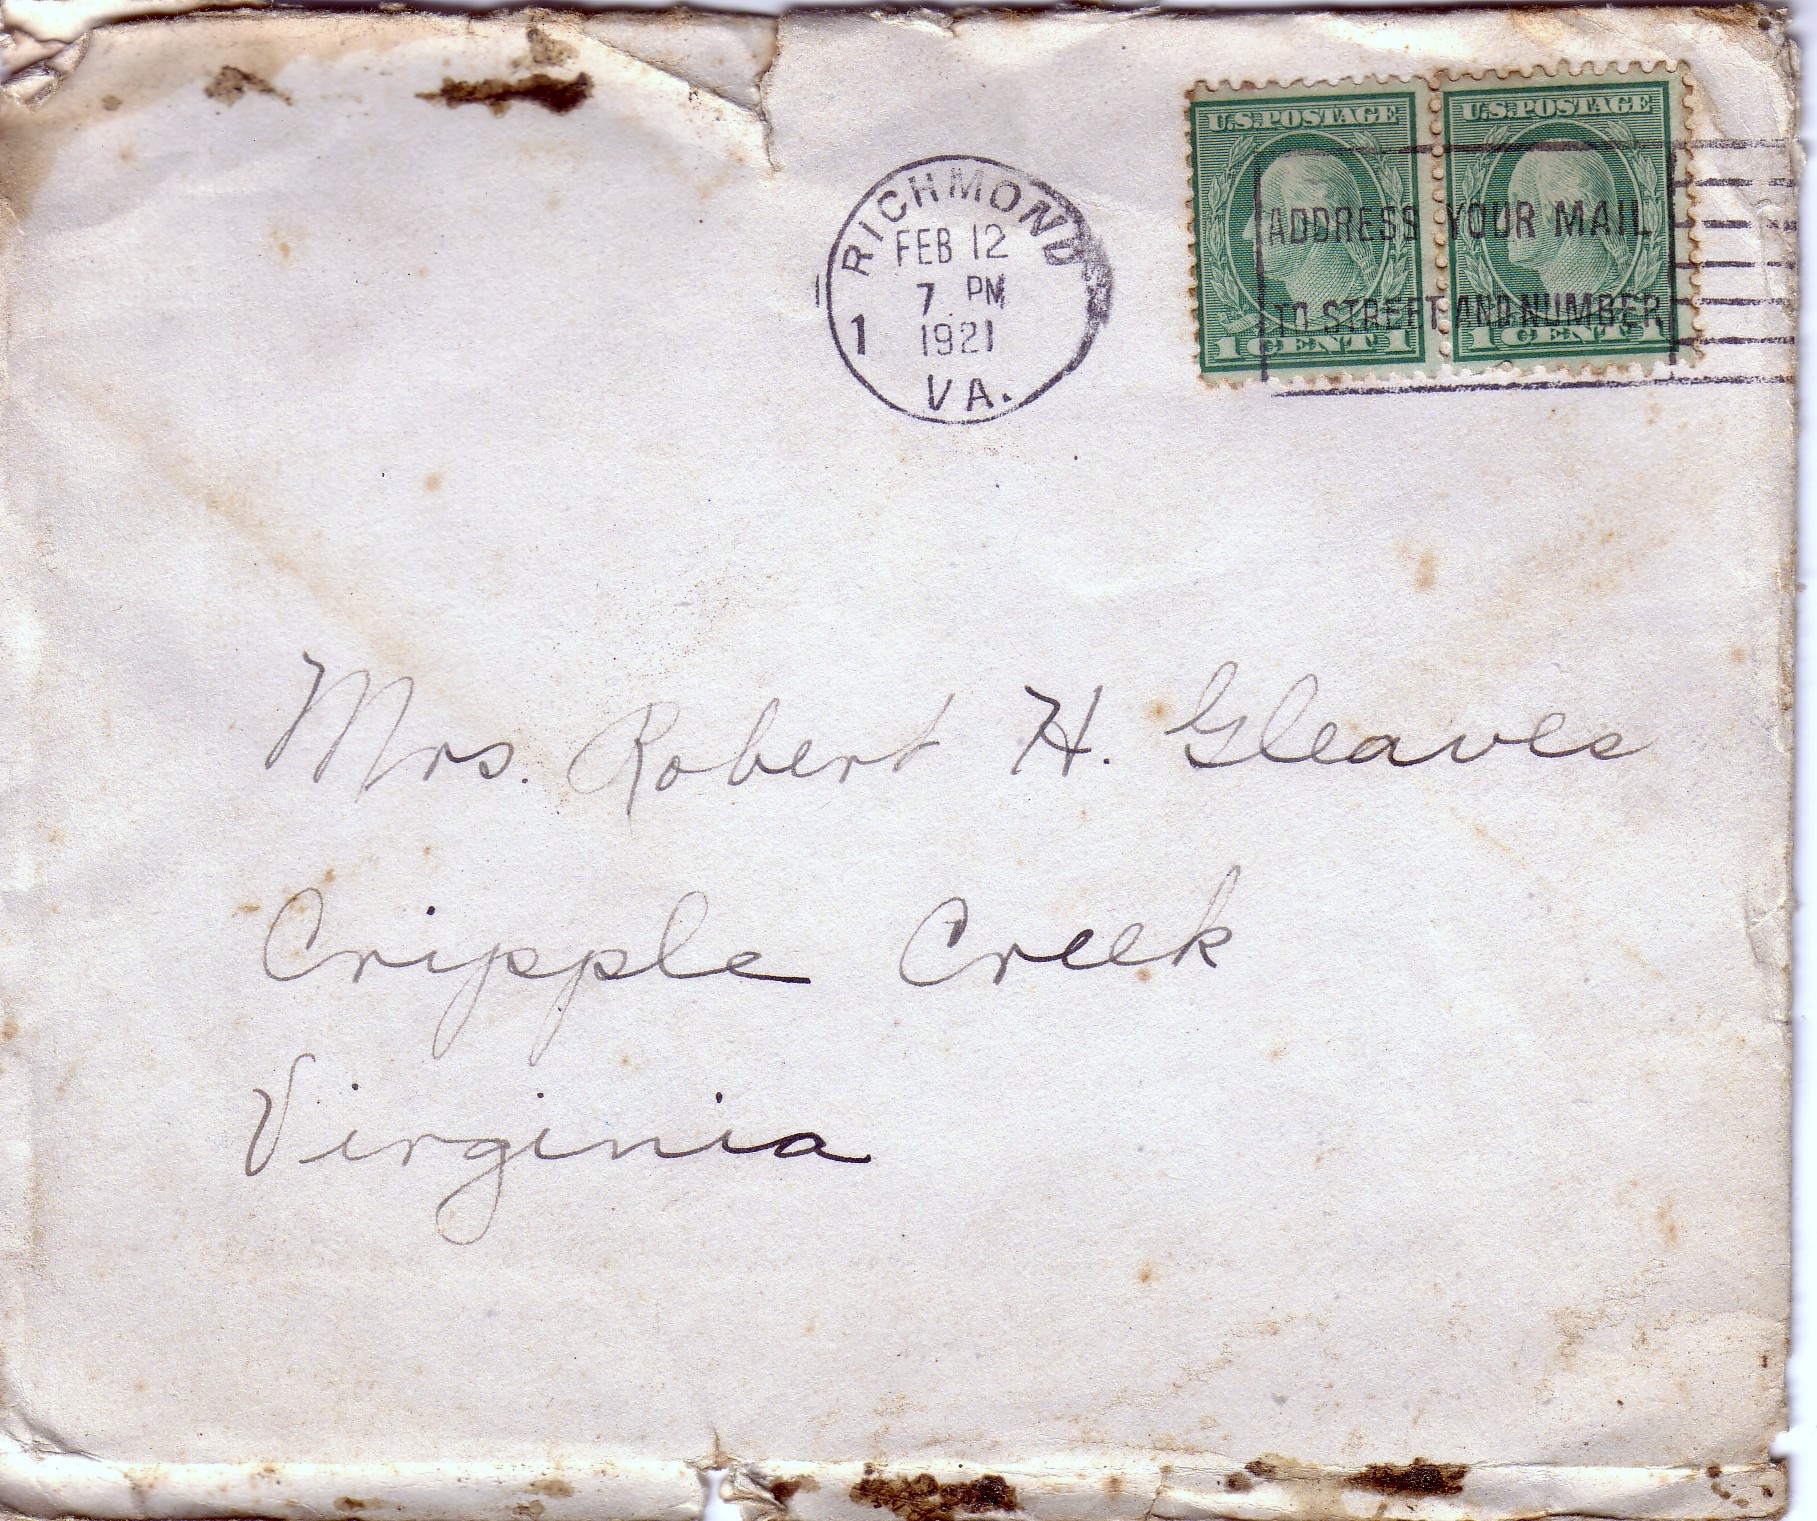 RICHMOND
FEB 12
7 PM
1921
1
VA.
U.S. POSTAGE
1 CENT 1
U.S. POSTAGE
1 CENT 1
ADDRESS YOUR MAIL
TO STREET AND NUMBER
Mrs. Robert H. Gleaves
Cripple Creek
Virginia